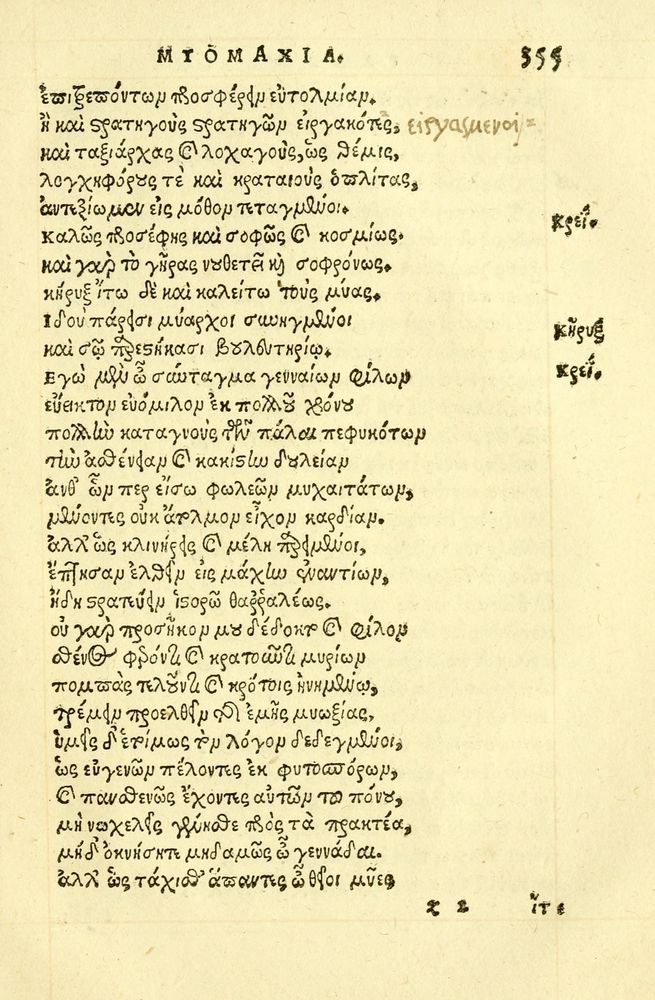 ΜΥΟΜΑΧΙΑ. 355
ἐπιτρεπόντων προσφέρειν εὐτολμίαν.
ἢ καὶ στρατηγοὺς στρατηγῶν εἰργακότες, εἰργασμένοι
καὶ ταξιάρχας καὶ λοχαγοὺς, ὡς θέμις,
λογχηφόρους τὲ καὶ κραταιοὺς ὁπλίτας,
ἀντεξίωμεν εἰς μόθον τεταγμένοι.
καλῶς προσέφης καὶ σοφῶς καὶ κοσμίως. κρεΐ.
καὶ γὰρ τὸ γῆρας νουθετεῖ καὶ σοφρόνως.
κῆρυξ ἴτω δὲ καὶ καλείτω τοὺς μύας.
Ἰδοὺ πάρεισι μύαρχοι συνηγμένοι κῆρυξ
καὶ σῷ παρεστήκασι βουλευτηρίῳ.
Ἐγὼ μὲν ὦ σύνταγμα γενναίων φίλων κρεΐ.
εὔεικτον εὐόμιλον ἐκ πολλοῦ χρόνου
πολλὴν καταγνοὺς τῶν πάλαι πεφυκότων
τὴν ἀσθένειαν καὶ κακίστην δουλείαν
ἀνθ' ὧν περ εἴσω φωλεῶν μυχαιτάτων,
μένοντες οὐκ ἄτολμον εἶχον καρδίαν.
ἀλλ' ὡς κλινήρεις καὶ μέλη παρειμένοι,
ἔπτησαν ἐλθεῖν εἰς μάχην ἐναντίων,
ἤδη στρατεύειν ἱστορῶ θαῤῥαλέως.
οὐ γὰρ προσῆκον μου δέδοκται φίλον
σθένος φέροντα καὶ κρατοῦντα μυρίων
πομπὰς τελοῦντα καὶ κρότοις ἡνημένῳ,
τρέμειν προελθεῖν ἐξ ἐμῆς μυωξίας,
ὑμεῖς δ' ἑτοίμως τὸν λόγον δεδεγμένοι,
ὡς εὐγενῶν πέλοντες ἐκ φυτοσπόρων,
καὶ πανσθενῶς ἔχοντες αὐτῶν τοῦ πόνου,
μὴ νωχελεῖς γένοισθε πρὸς τὰ πρακτέα,
μηδ' ὀκνήσητε μηδαμῶς ὦ γεννάδαι.
ἀλλ' ὡς τάχιστα ἅπαντες ὦ θεῖοι μύες
z 2 ἴτε